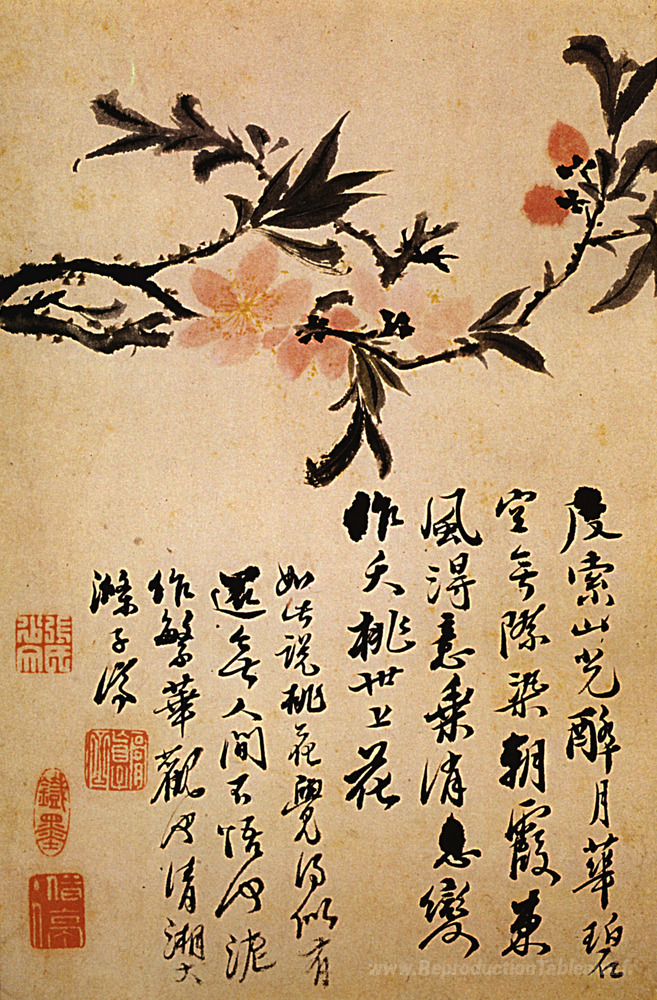 度索山光醉月華碧
空無際染朝霞東
風得意乘消息變
作夭桃世上花
如此说桃花覺得似有
還無人間不悟何泥
作繁華觀也清湘大
滌子濟
鐵墨
www.ReproductionTable